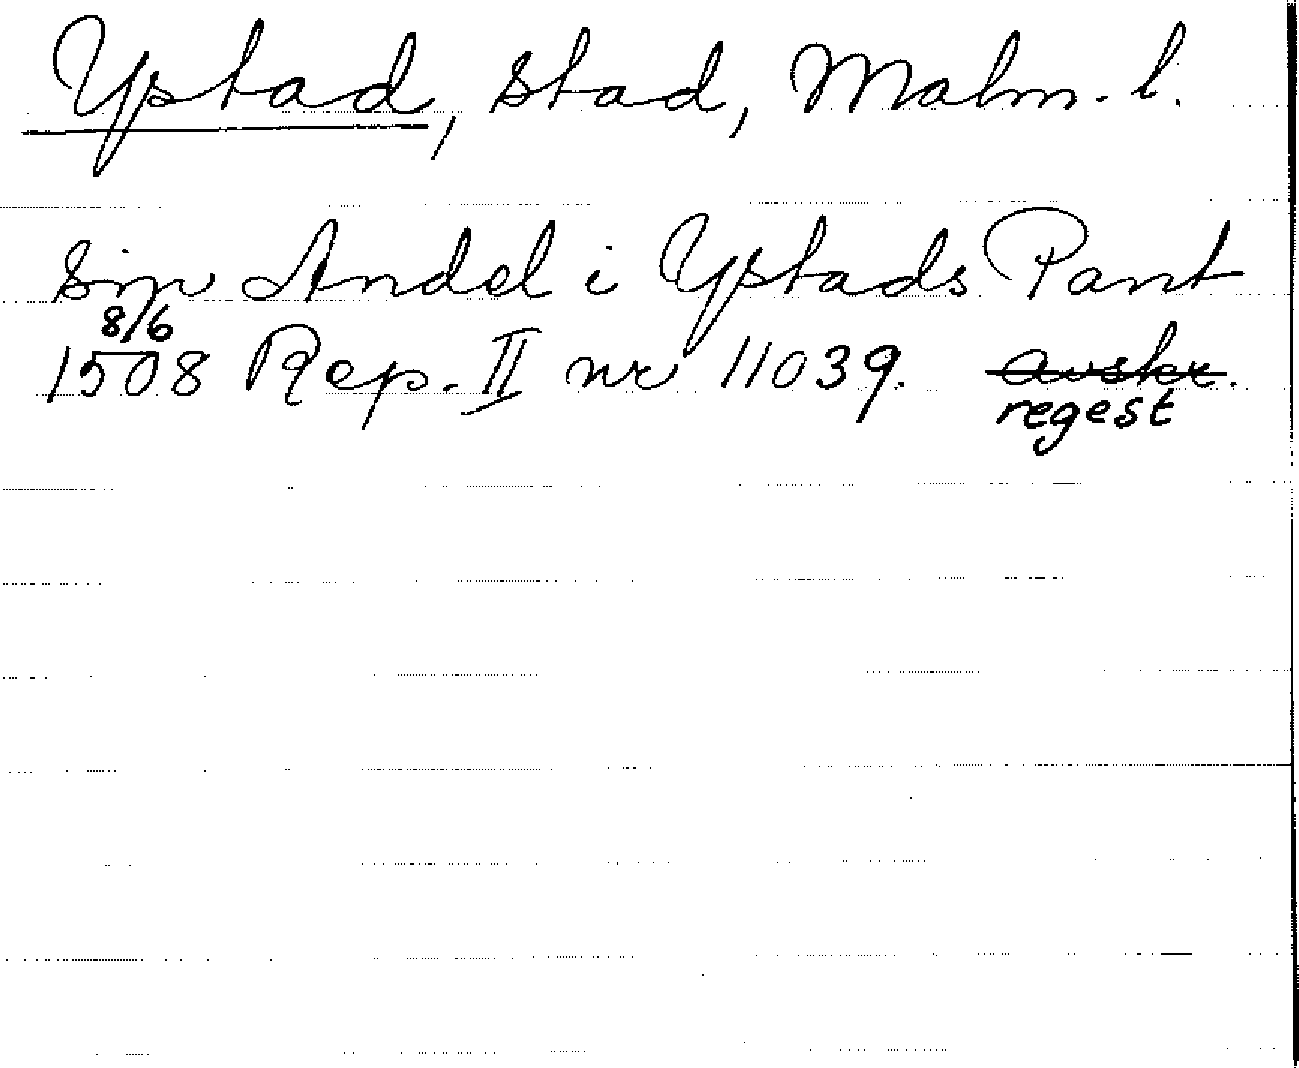 Ystad, stad, Malm. l.
sin Andel i Ystads Pant
8/6
1508 Rep. II nr 11039. avskr.
regest